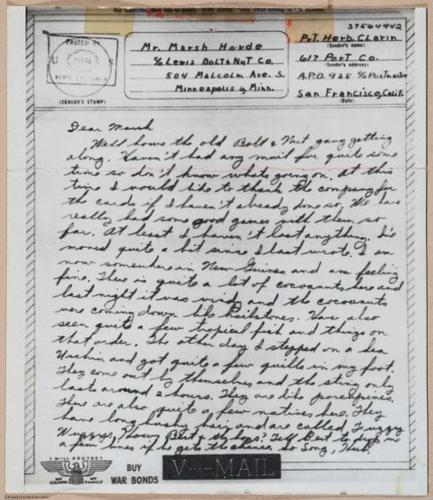 37564942
PASSED BY
U S
ARMY EXAMINER
(CENSOR'S STAMP)
Mr. Marsh Horde
c/o Lewis Bolt & Nut Co.
504 Malcolm Ave. S.
Minneapolis, Minn.
Pvt. Herb Clarin
(Sender's name)
617 Port Co.
(Sender's address)
A.P.O. 928 c/o Postmaster
San Francisco, Calif.
(Date)
Dear Marsh
Well hows the old Bolt & Nut gang getting
along. Haven't had any mail for quite some
time so don't know whats going on. At this
time I would like to thank the company for
the cards if I haven't already done so. We have
really had some good games with them so
far. At least I haven't lost anything. I've
moved quite a bit since I last wrote. I am
now somewhere in New Guinea and am feeling
fine. There is quite a lot of cocoanuts here and
last night it was windy and the cocoanuts
were coming down like hailstones. Have also
seen quite a few tropical fish and things on
that order. The other day I stepped on a Sea
Urchin and got quite a few quills in my foot.
They come out by themselves and the sting only
lasts around 2 hours. They are like porcupines.
There are also quite a few natives here. They
have long bushy hair and are called Fuzzy
Wuzzys. Hows Bert & the boys? Tell Bert to drop me
a few lines if he gets the chance. So Long, Herb.
I WILL PROTECT
MY COUNTRY MY FAMILY
BUY
WAR BONDS
V···–MAIL